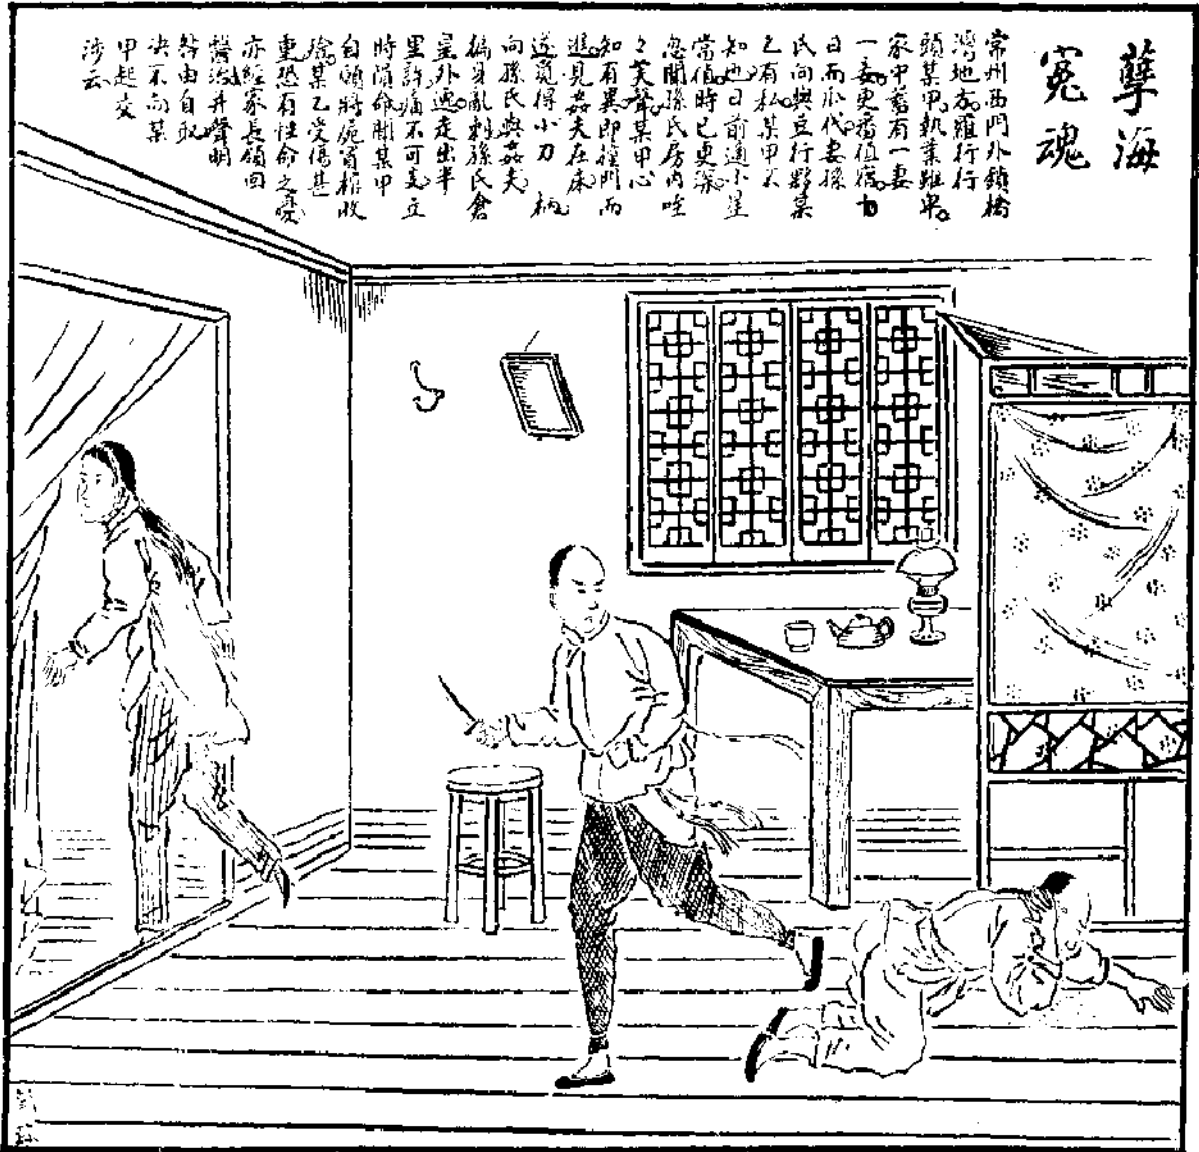 孽海
冤魂
常州西門外鎖橋
灣地方羅行行
頭某甲執業雖卑
家中舊有一妻
一妾更番值宿
日而瓜代妻孫
氏向與豆行夥某
乙有私某甲不
知也日前適小星
當值時已更深
忽聞孫氏房內吃
々笑聲某甲心
知有異即撞門而
進見姦夫在床
遂覓得小刀 柄
向孫氏與姦夫
徧身亂刺孫氏倉
皇外遁走出半
里許痛不可支立
時隕命聞某甲
自願將屍首棺收
殮某乙受傷甚
重恐有性命之憂
亦經家長領回
醫治並聲明
咎由自取
決不向某
甲起交
涉云